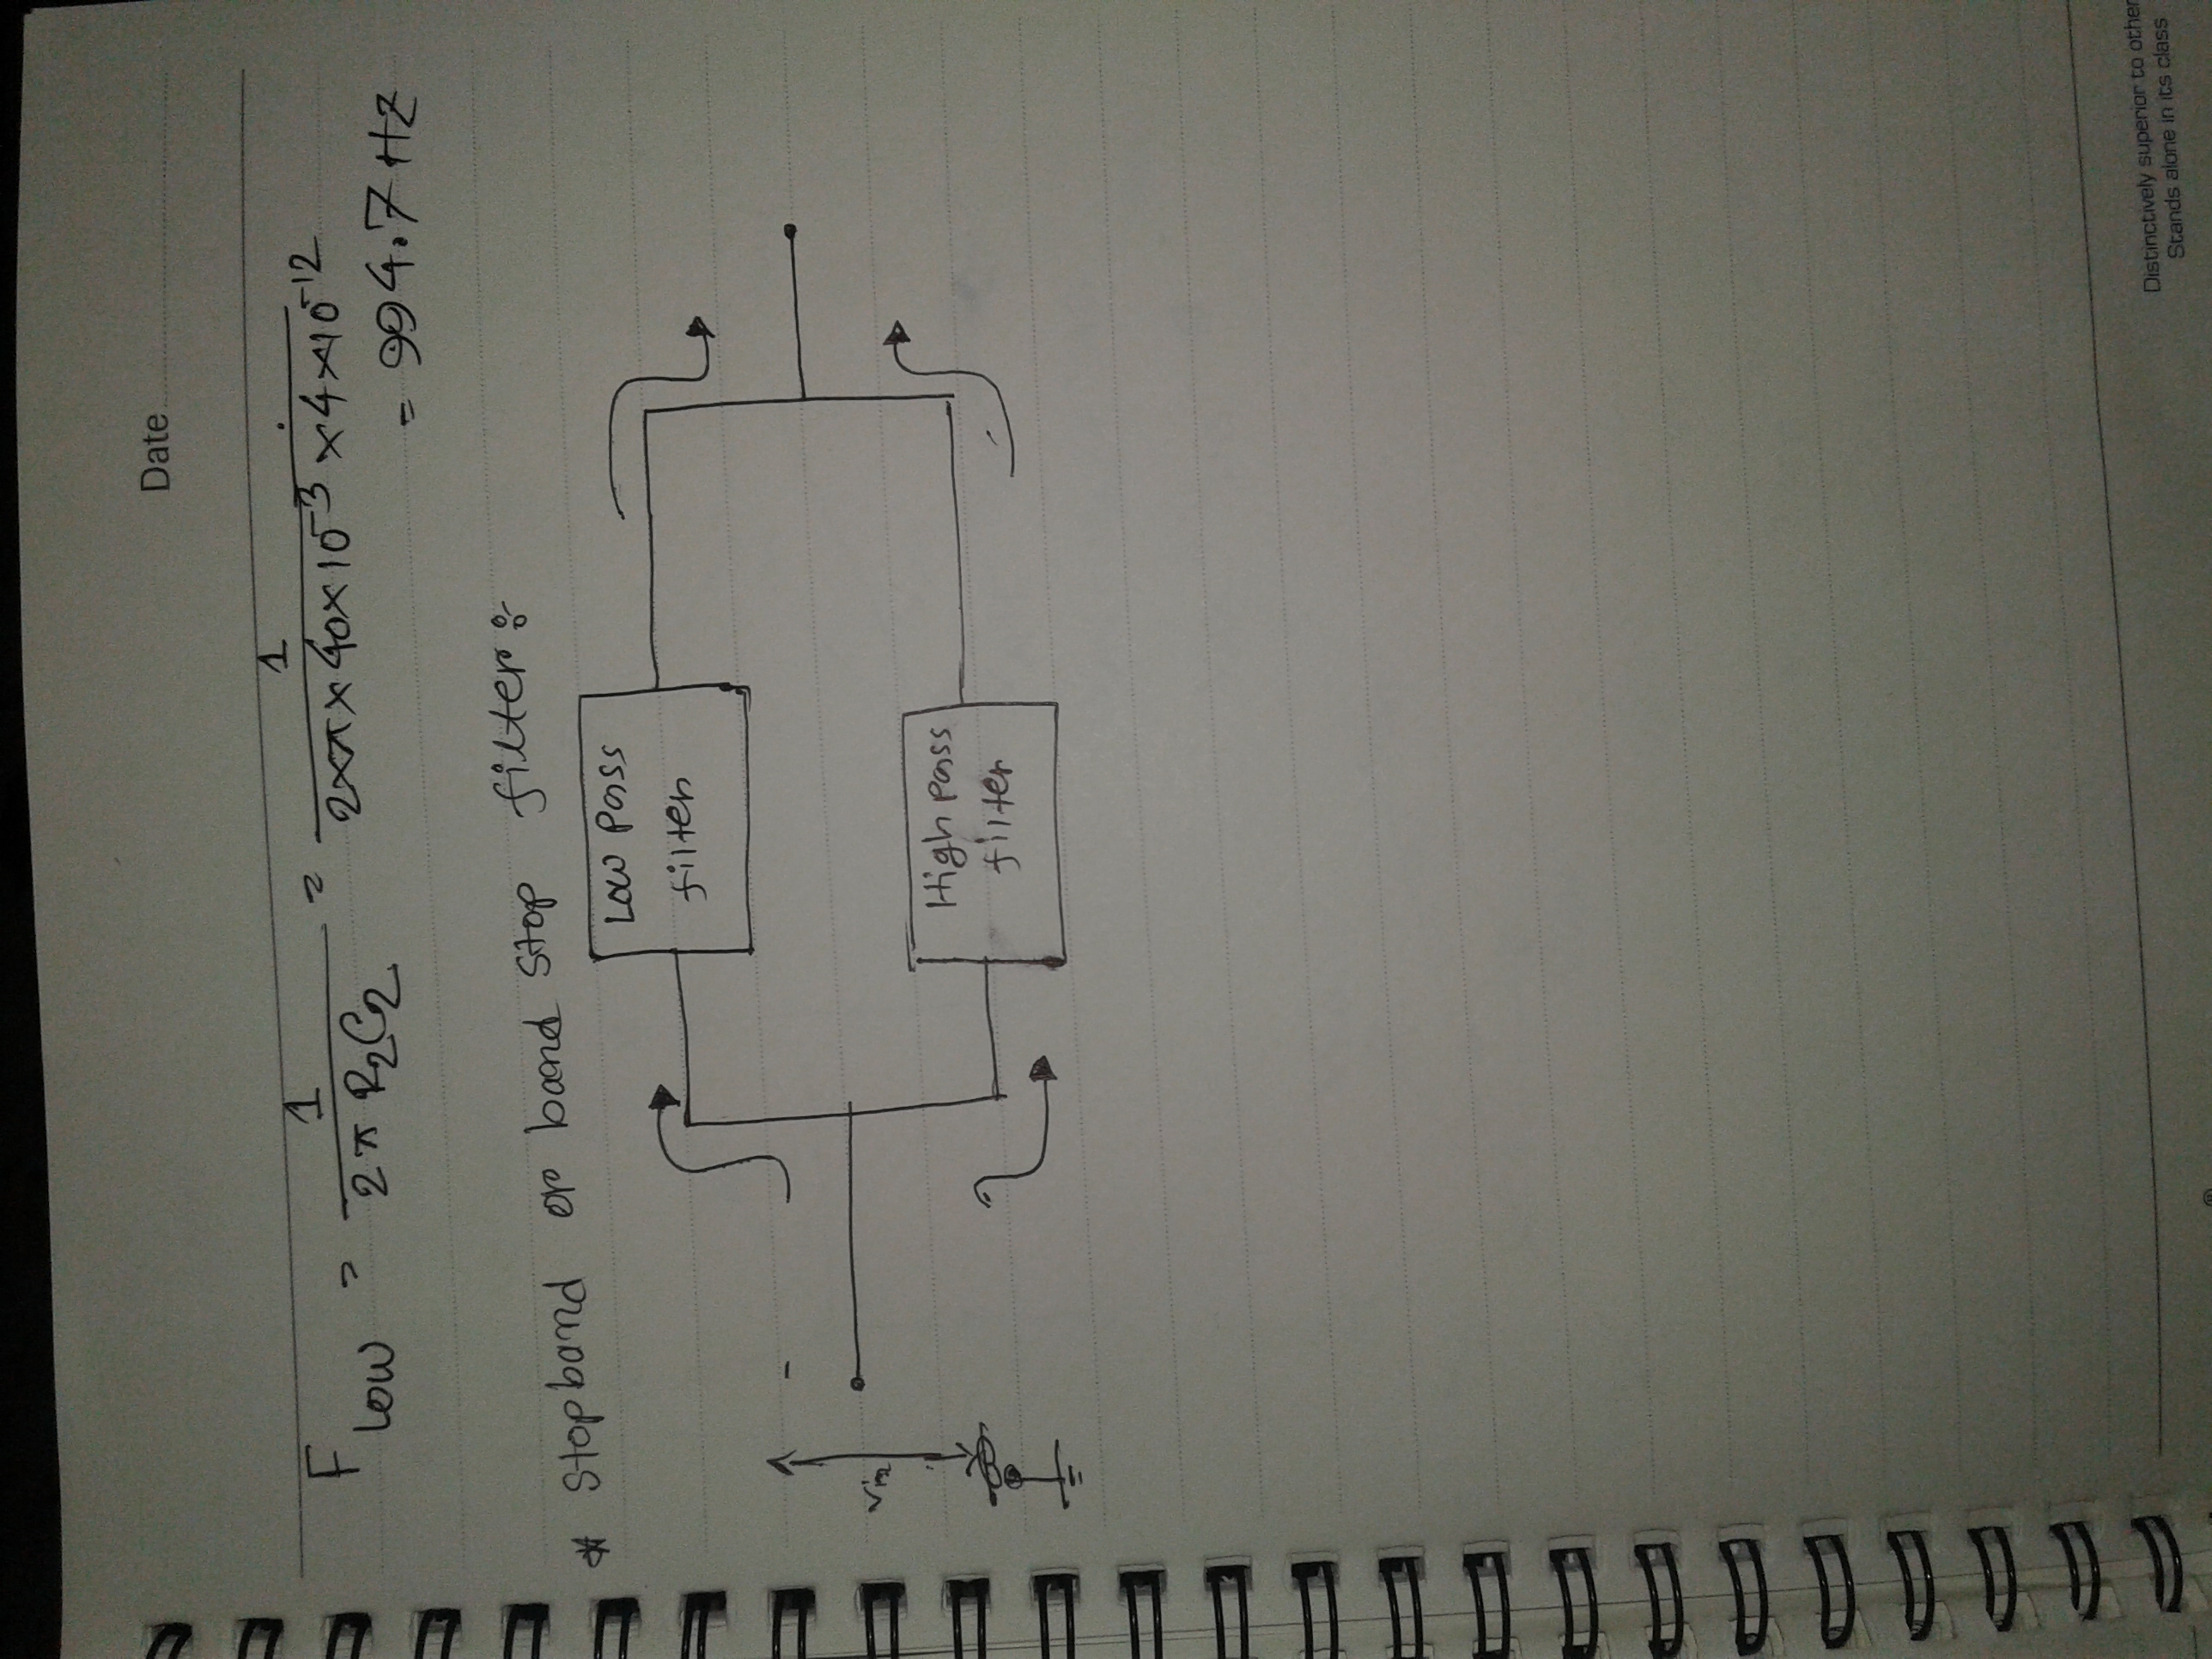 Date
F Low = 1 / 2π R₂C₂ = 1 / 2×π×40×10⁻³×4×10⁻¹²
= 994.7 Hz
* Stopband or band stop filter:
Low pass
filter
Vin
High pass
filter
Distinctively superior to other
Stands alone in its class